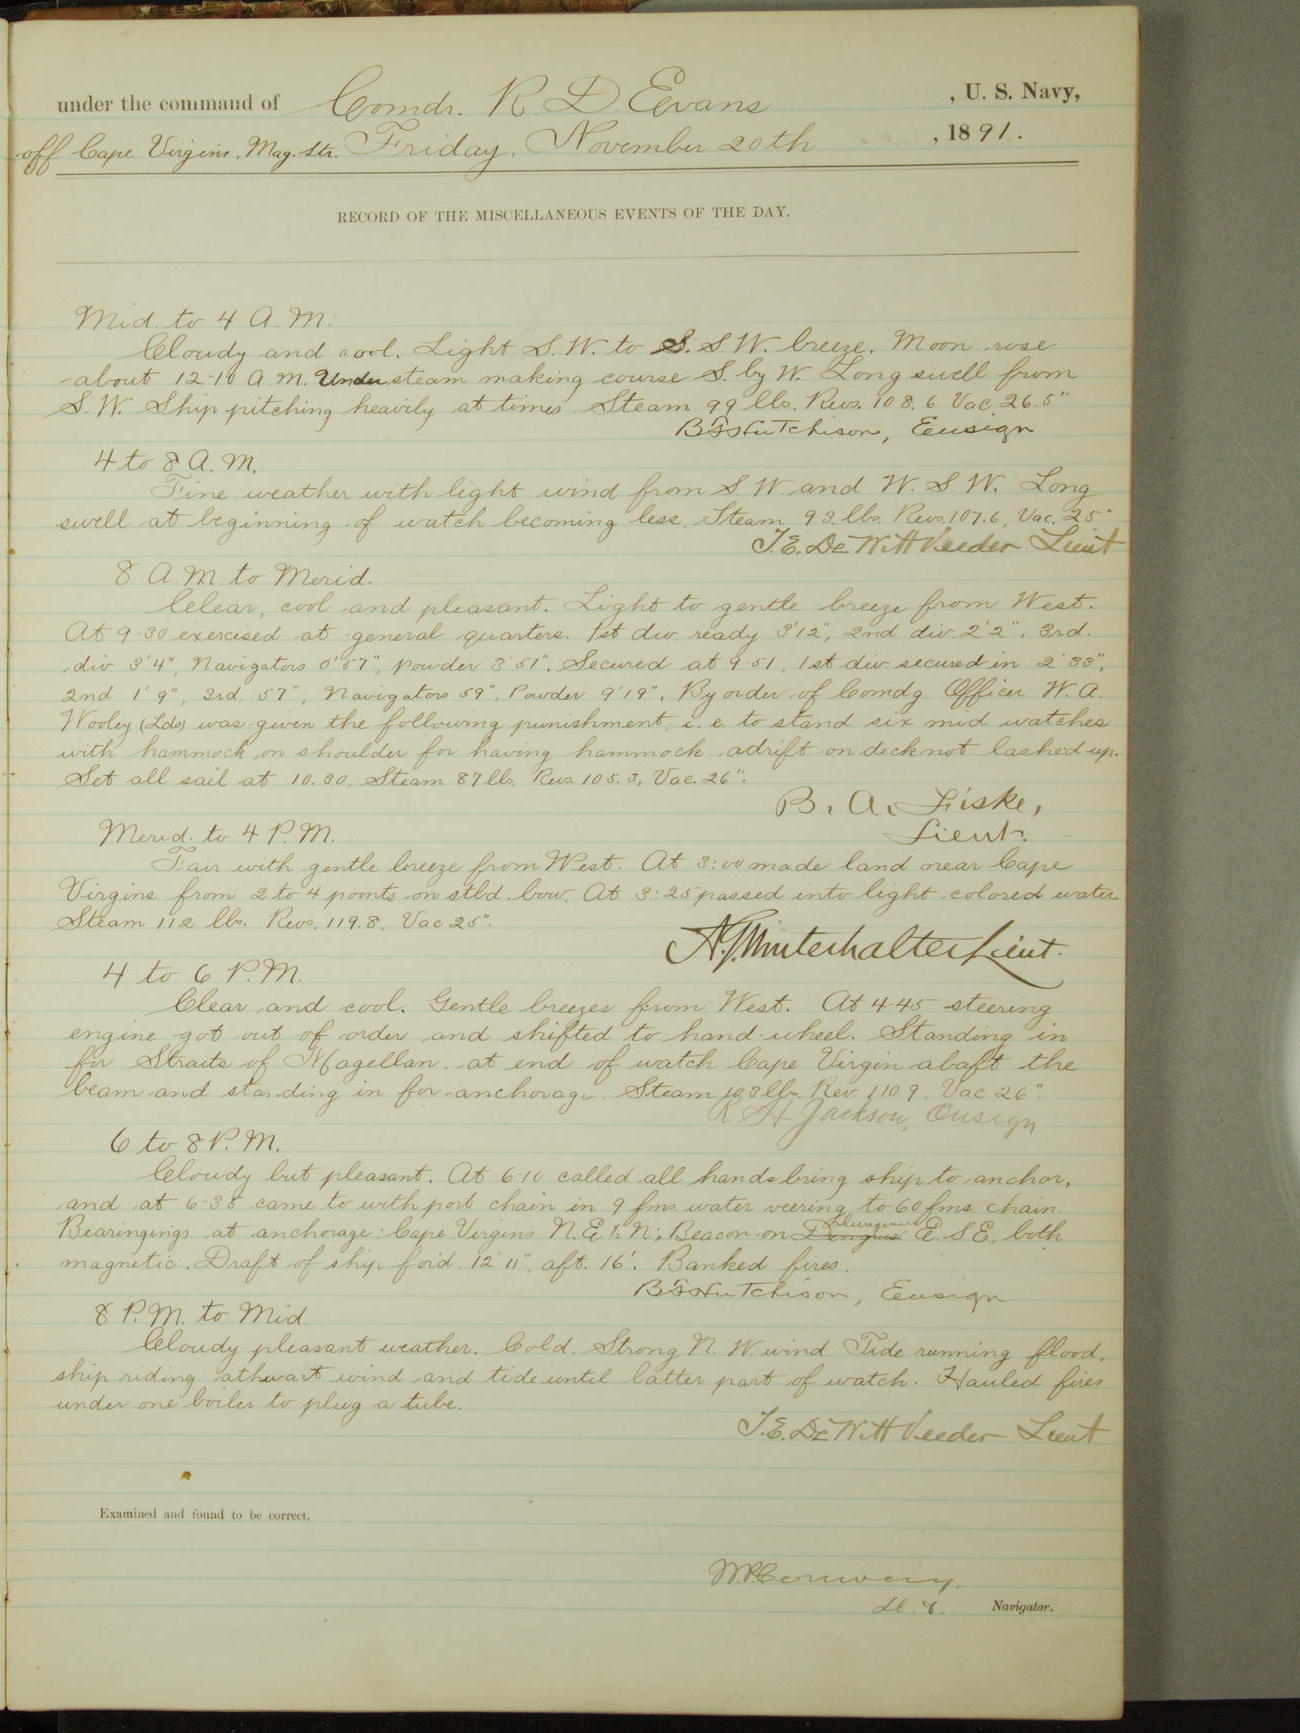 under the command of Comdr. R. D. Evans , U. S. Navy,
off Cape Virgins, Mag. Str. Friday, November 20th , 1891.
RECORD OF THE MISCELLANEOUS EVENTS OF THE DAY.
Mid. to 4 A. M.
Cloudy and cool. Light S. W. to S. S. W. breeze. Moon rose
about 12-10 A. M. Under steam making course S. by W. Long swell from
S. W. Ship pitching heavily at times. Steam 99 lbs. Revs. 108.6 Vac 26.5"
B F Hutchison, Ensign
4 to 8 A. M.
Fine weather with light wind from S. W. and W. S. W. Long
swell at beginning of watch becoming less. Steam 93. lbs. Revs. 107.6, Vac. 25"
T. E. DeWitt Veeder Lieut
8 A. M. to Merid.
Clear, cool and pleasant. Light to gentle breeze from West.
At 9-30 exercised at general quarters. 1st div. ready 3'12", 2nd div. 2'2", 3rd.
div 3'4", Navigators 0'57", powder 3'51". Secured at 9.51, 1st div. secured in 2'33",
2nd 1'9", 3rd 57", Navigators 59", Powder 9'19". By order of Comdg. Officer W. A.
Wooley (Lds) was given the following punishment, i. e. to stand six mid watches
with hammock on shoulder for having hammock adrift on deck not lashed up.
Set all sail at 10.30, Steam 87 lbs. Revs 105.3, Vac. 26".
B. A. Fiske,
Lieut.
Merid. to 4 P. M.
Fair with gentle breeze from West. At 3:00 made land near Cape
Virgins from 2 to 4 points on stbd. bow. At 3:25 passed into light colored water
Steam 112 lbs. Revs. 119.8, Vac 25".
A. G. Winterhalter Lieut.
4 to 6 P. M.
Clear and cool. Gentle breezes from West. At 4-45 steering
engine got out of order and shifted to hand-wheel. Standing in
for Straits of Magellan, at end of watch Cape Virgin abaft the
beam and standing in for anchorage. Steam 103 lbs. Rev. 110.9, Vac 26".
R H Jackson, Ensign
6 to 8 P. M.
Cloudy but pleasant. At 6-10 called all hands bring ship to anchor,
and at 6-35 came to with port chain in 9 fms. water veering to 60 fms. chain.
Bearingings at anchorage: Cape Virgins N. E. ½ N; Beacon on Dungeness E. S E, both
magnetic. Draft of ship for'd. 12' 11", aft. 16'. Banked fires.
B F Hutchison, Ensign
8 P. M. to Mid.
Cloudy pleasant weather. Cold. Strong N. W. wind Tide running flood,
ship riding athwart wind and tide until latter part of watch. Hauled fires
under one boiler to plug a tube.
T. E. DeWitt Veeder Lieut
Examined and found to be correct.
Navigator.